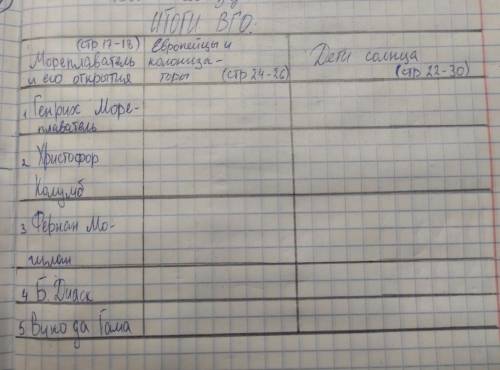 ИТОГИ ВГО:
(стр 17-18)
Мореплаватель
и его открытия
Европейцы и
колониза-
торы (стр 24-26)
Дети солнца
(стр 22-30)
1. Генрих Море-
плаватель
2. Христофор
Колумб
3. Фернан Мо-
гилан
4. Б. Диаск
5. Вико да Гама